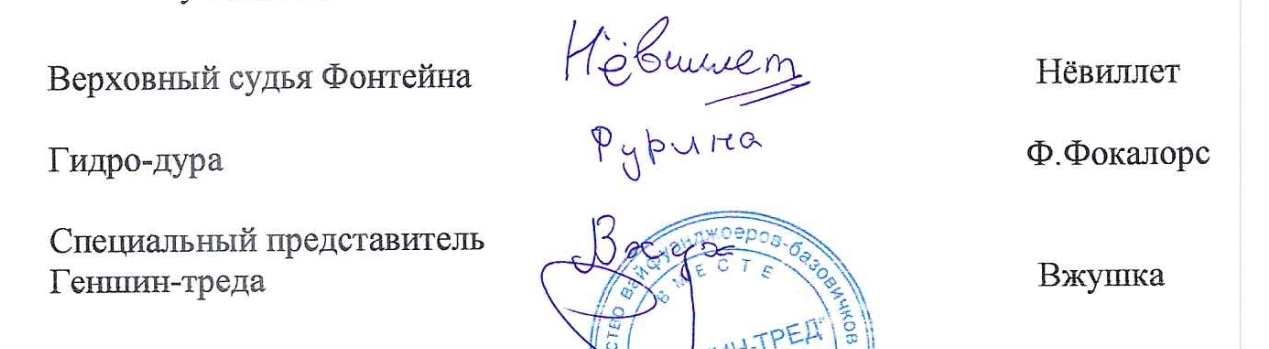 Верховный судья Фонтейна Нёвиллет Нёвиллет
Гидро-дура Фурина Ф.Фокалорс
Специальный представитель
Геншин-треда Вжух Вжушка
вайфуанджоеров-базовичков
ВМЕСТЕ
ТРЕД"